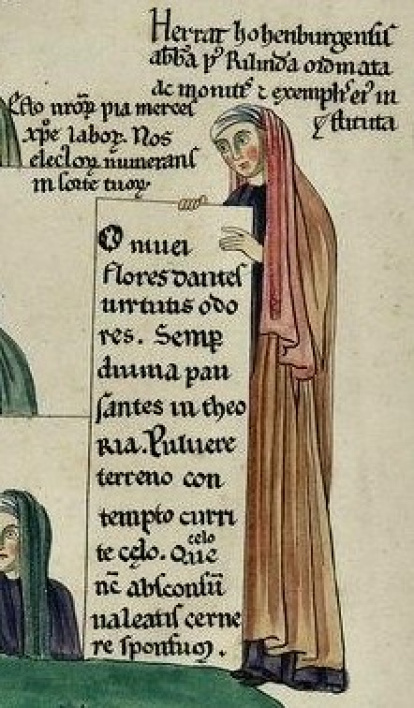 Herrat hohenburgensis
abb̄a p̄ Rilinda ordinata
ac monitis ⁊ exemplis ei᷒ in
stituta
Esto nr̄oꝝ pia merces
xp̄e laboꝝ. Nos
electoꝝ numerans
in sorte tuoꝝ.
O niuei
flores dantes
uirtutis odo
res. Semp̱
diuina pau
santes in theo
ria. Puluere
terreno con
tempto curri
te cęlo. Que
celo
nc̄ absconsū
ualeatis cerne
re sponsum.